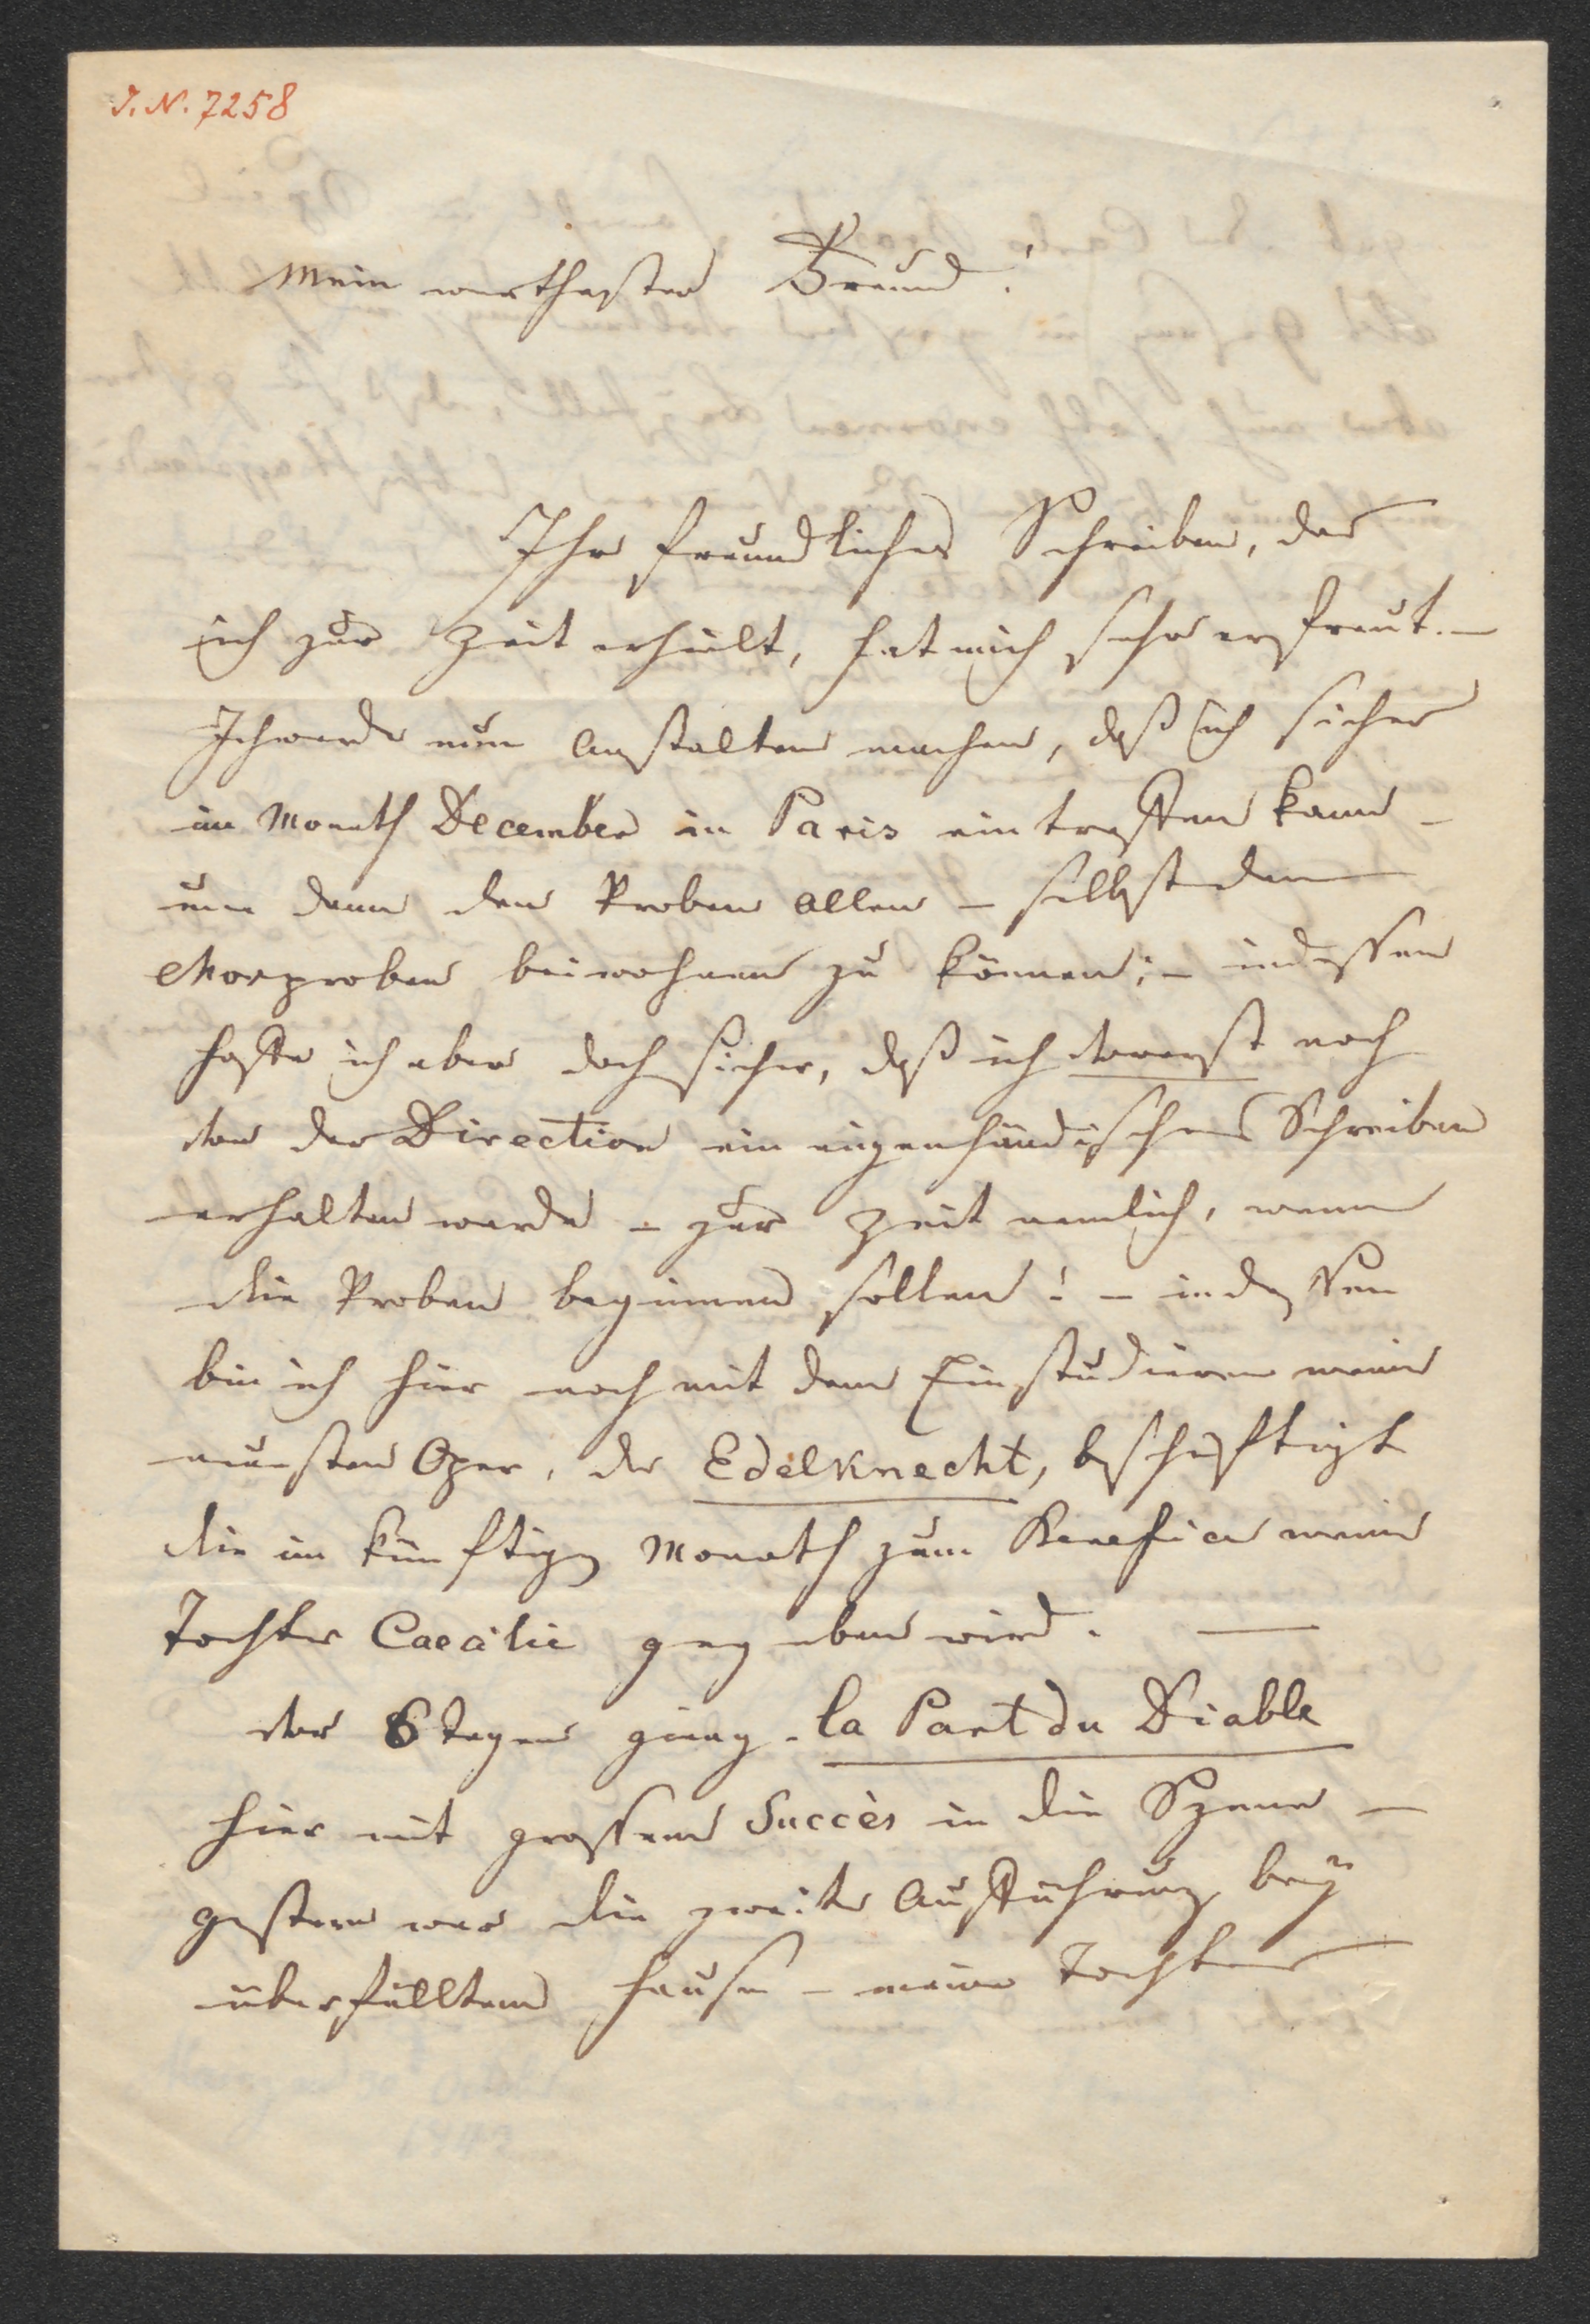 J. N. 7258
Mein werthester Freund!
Ihr freundliches Schreiben, das
ich zur Zeit erhielt, hat mich sehr erfreut. –
Ich werde nun Anstalten machen, daß ich sicher
im Monath December in Paris eintreffen kann –
um dann den Proben allen – selbst den
Chorproben beiwohnen zu können; – indessen
hoffe ich aber doch sicher, daß ich vorerst noch
von der Direction ein eigenhändisches Schreiben
erhalten werde – zur Zeit nemlich, wenn
die Proben beginnen sollen! – indessen
bin ich hier noch mit dem Einstudieren meiner
neuesten Oper, der Edelknecht, beschäftigt
die im künftigen Monath zum Benefice meiner
Tochter Caecilie gegeben wird. —
Vor 8 Tagen ging – la Part du Diable
hier mit grossem Succès in die Szene –
gestern war die zweite Aufführung bey
überfülltem Hause – meine Tochter